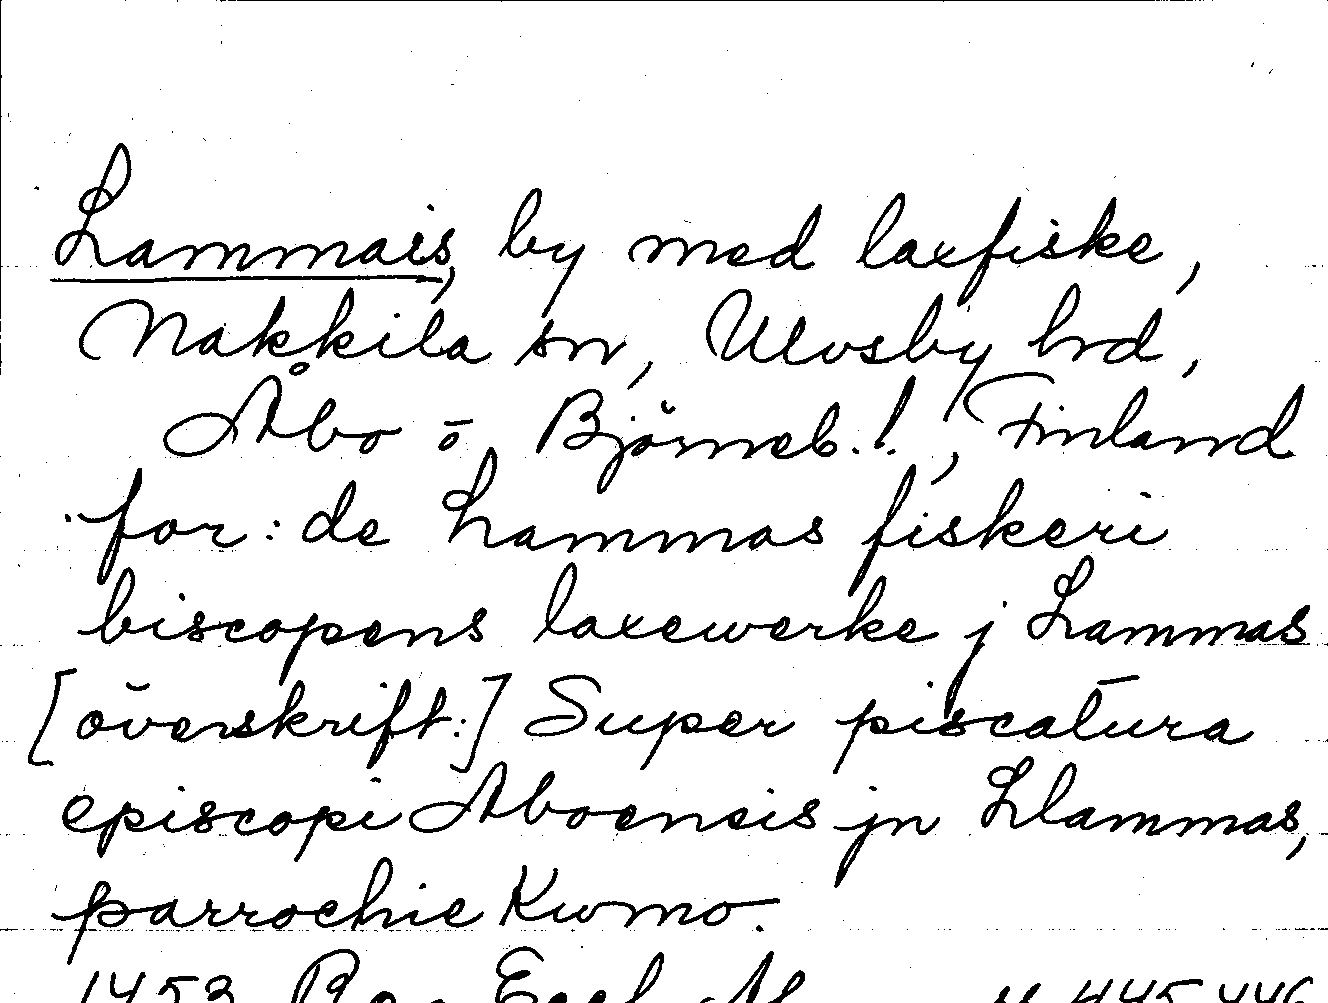 Lammais, by med laxfiske,
Nakkila sn, Ulvsby hrd,
Åbo o Björneb. l., Finland
for: de Lammas fiskeri
biscopens laxewerke j Lammas
[överskrift:] Super piscatura
episcopi Aboensis jn Llammas,
parrochie Kumo.
1453 Reg. Eccl. Ab. 445, 446